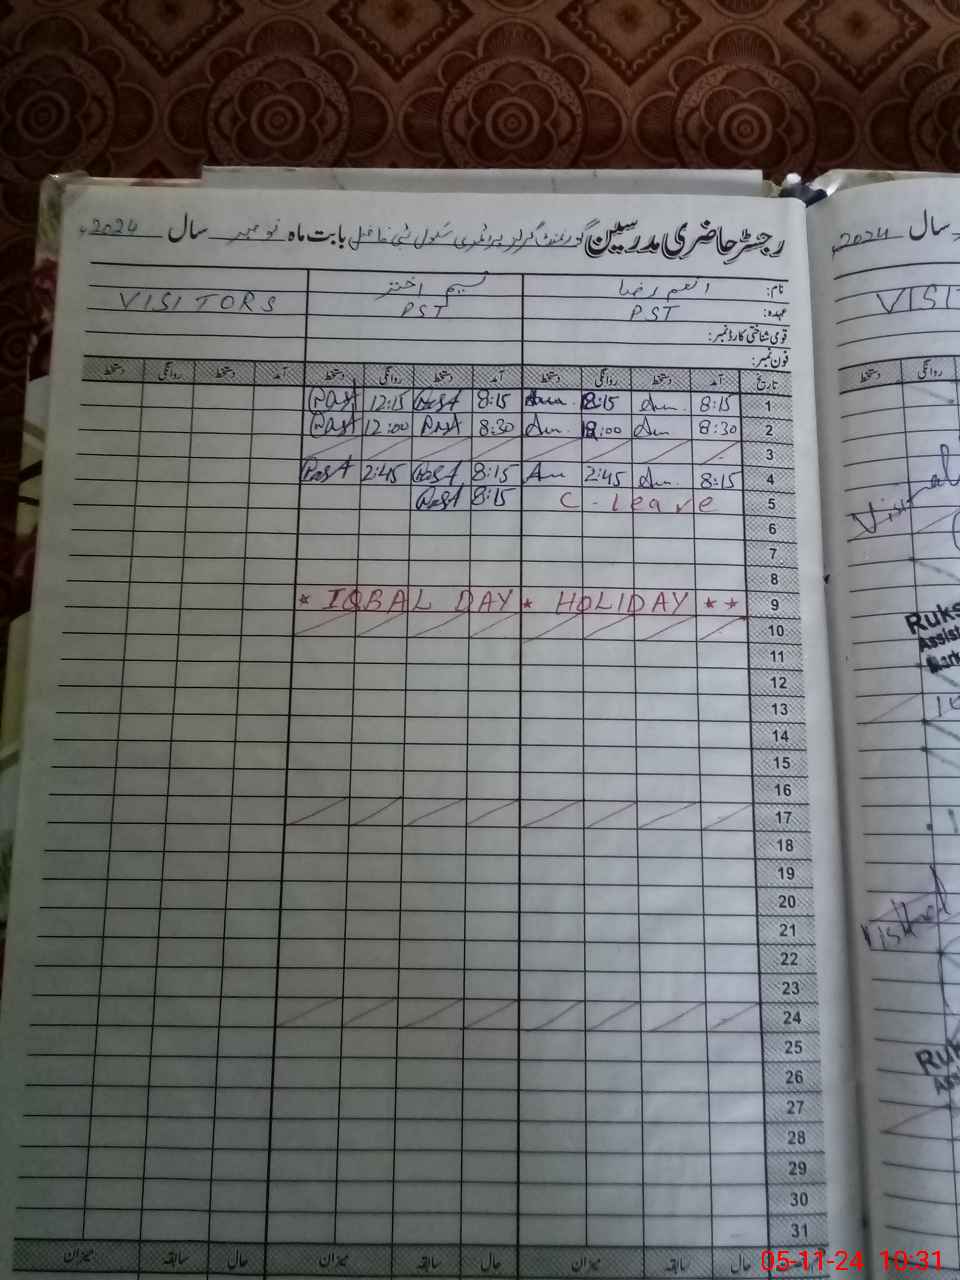 رجسٹر حاضری مدرسین گورنمنٹ گرلز پرائمری سکول بابت ماہ نومبر سال 2024ء
نام: انعم رضا نسیم اختر
عہدہ: PST PST VISITORS
قومی شناختی کارڈ نمبر:
فون نمبر:
تاریخ آمد دستخط روانگی دستخط آمد دستخط روانگی دستخط آمد دستخط روانگی دستخط
1 8:15 8:15 8:15 12:15
2 8:30 12:00 8:30 12:00
3
4 8:15 2:45 8:15 2:45
5 C - leave 8:15
6
7
8
9 * IQBAL DAY * HOLIDAY * *
10
11
12
13
14
15
16
17
18
19
20
21
22
23
24
25
26
27
28
29
30
31
حال سابقہ میزان حال سابقہ میزان حال سابقہ میزان
سال 2024ء
VISI
روانگی دستخط
Ruks
Assist
Mark
Visited
Ruk
Ass
05-11-24 10:31